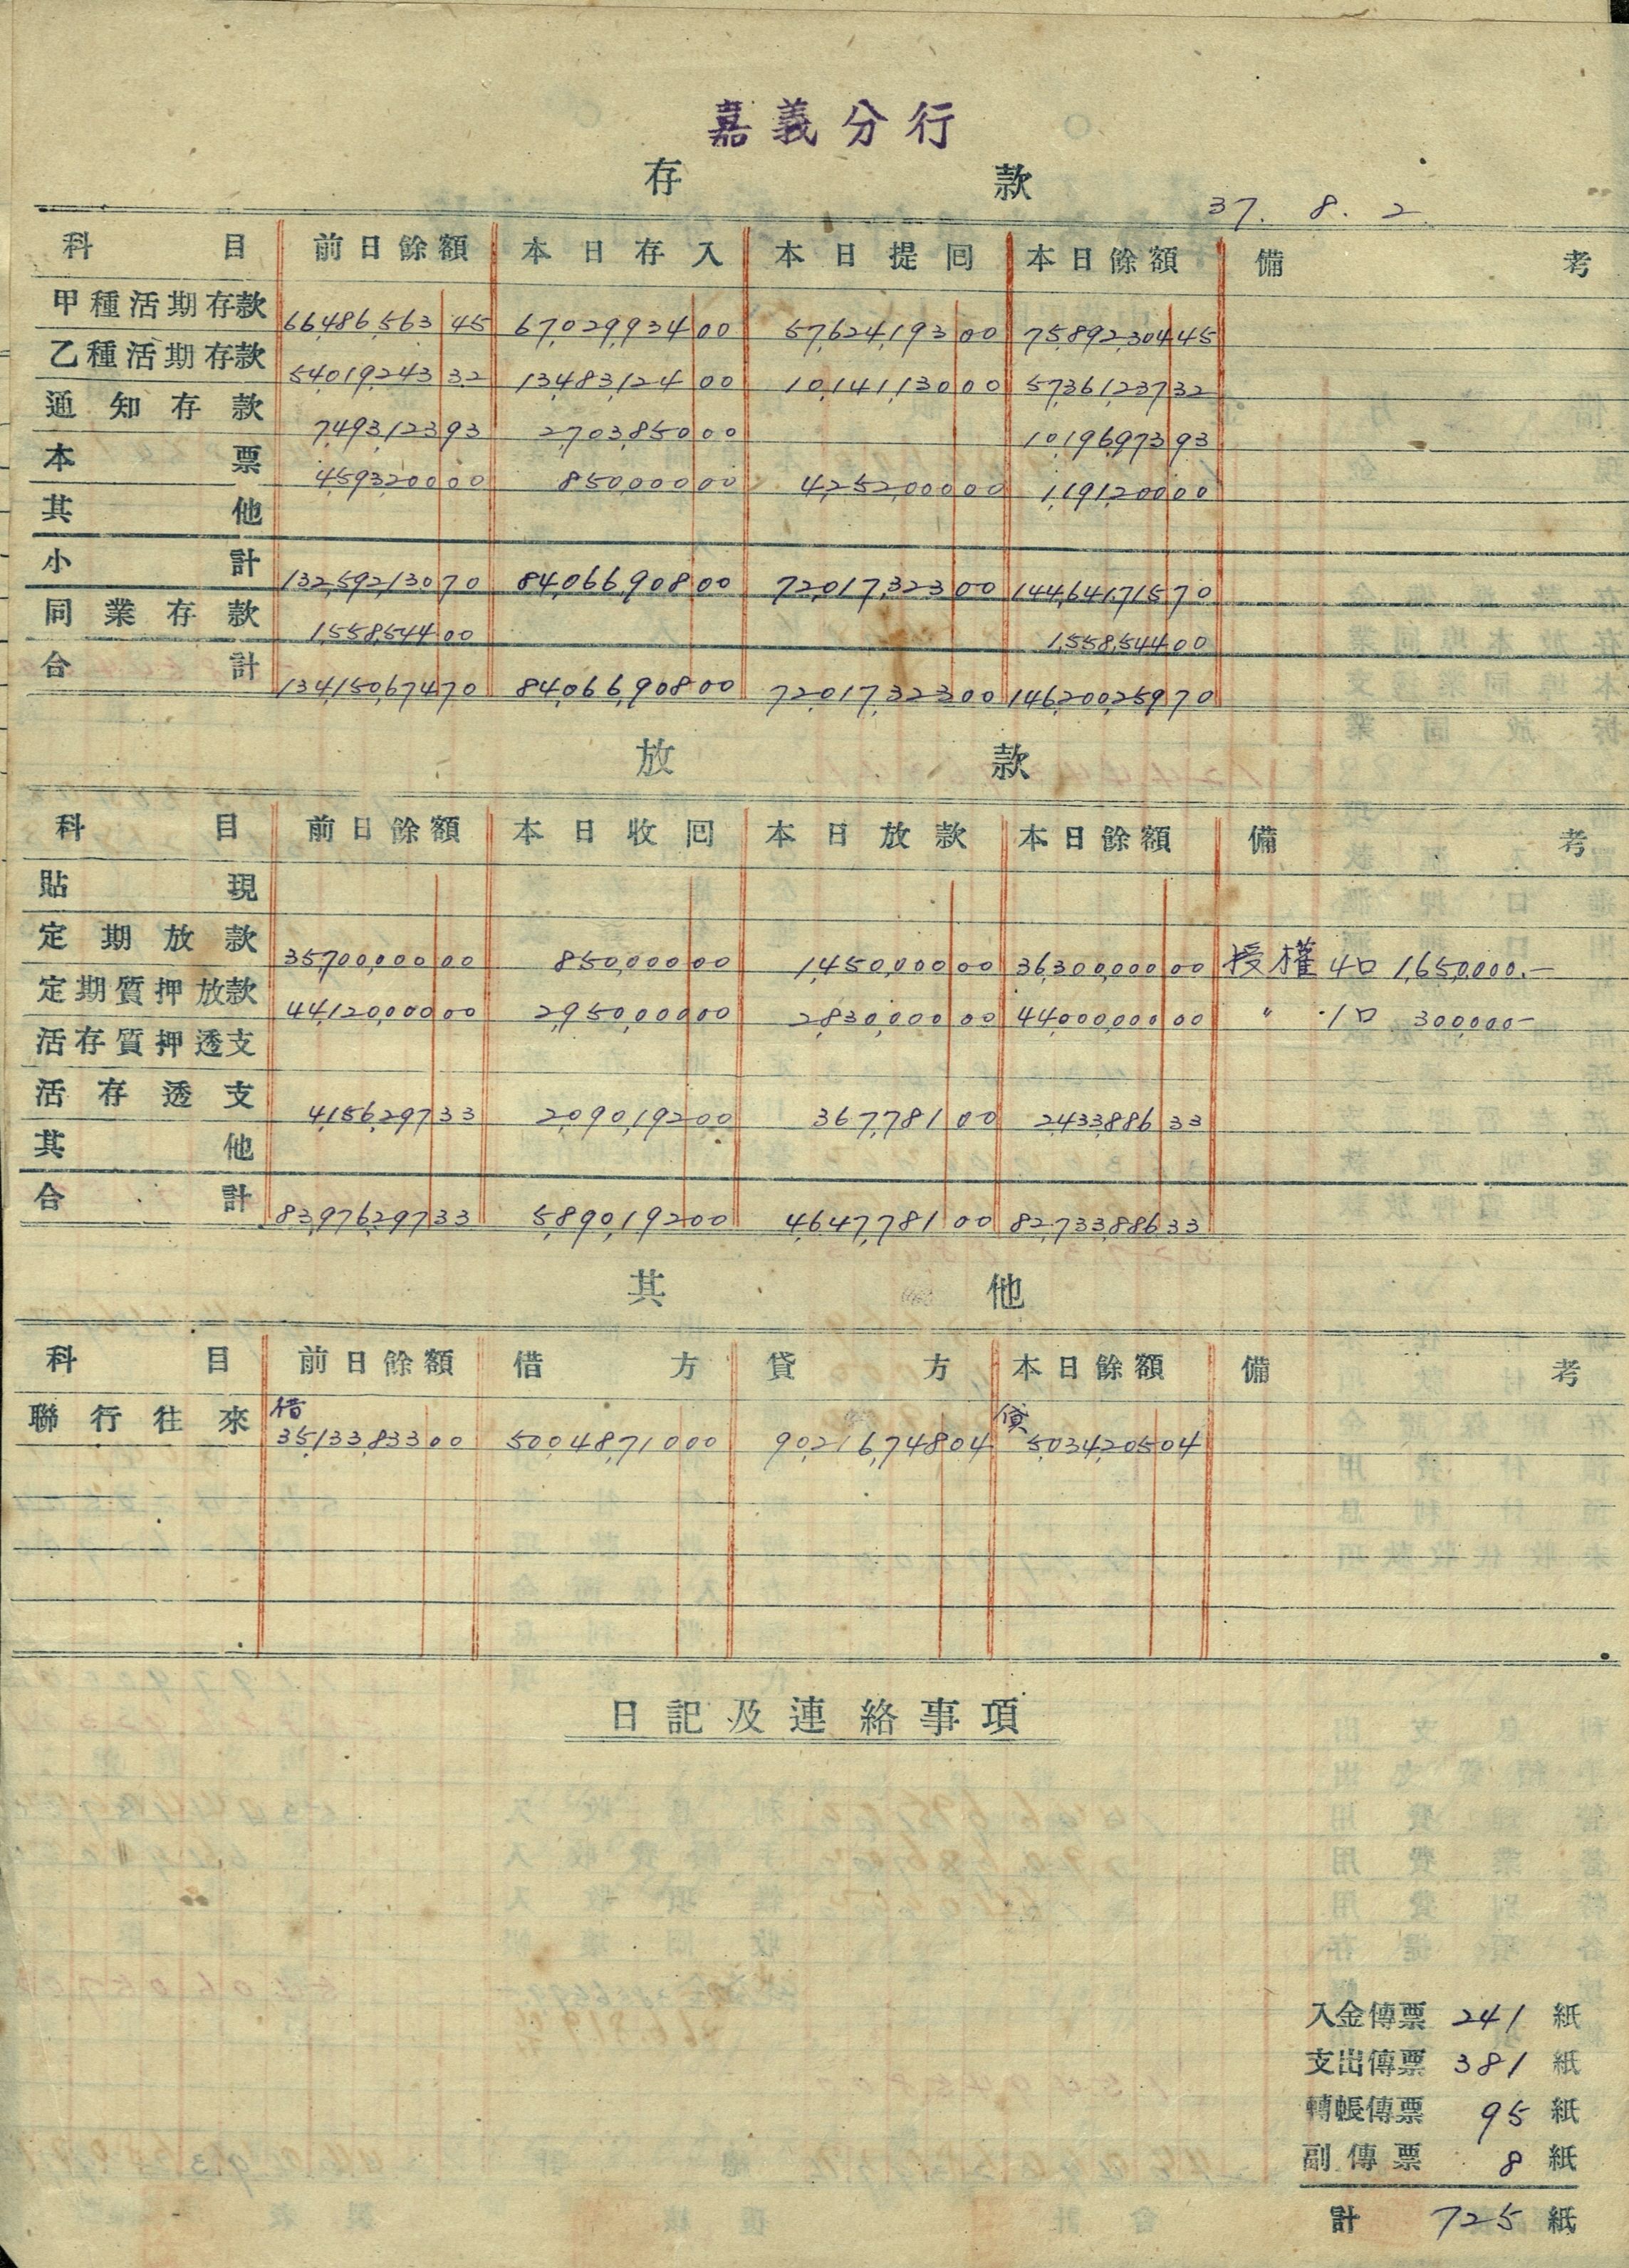 嘉義分行
存款
37. 8. 2.
科目 前日餘額 本日存入 本日提回 本日餘額 備考
甲種活期存款 66,486,563 45 67,029,934 00 57,624,193 00 75,892,304 45
乙種活期存款 54,019,243 32 13,483,124 00 10,141,130 00 57,361,237 32
通知存款 7,493,123 93 2,703,850 00 10,196,973 93
本票 4,593,200 00 850,000 00 4,252,000 00 1,191,200 00
其他
小計 132,592,130 70 84,066,908 00 72,017,323 00 144,641,715 70
同業存款 1,558,544 00 1,558,544 00
合計 134,150,674 70 84,066,908 00 72,017,323 00 146,200,259 70
放款
科目 前日餘額 本日收回 本日放款 本日餘額 備考
貼現
定期放款 35,700,000 00 850,000 00 1,450,000 00 36,300,000 00 授權 4口 1,650,000.—
定期質押放款 44,120,000 00 2,950,000 00 2,830,000 00 44,000,000 00 〃 1口 300,000—
活存質押透支
活存透支 4,156,297 33 2,090,192 00 367,781 00 2,433,886 33
其他
合計 83,976,297 33 5,890,192 00 4,647,781 00 82,733,886 33
其他
科目 前日餘額 借方 貸方 本日餘額 備考
聯行往來 借 35,133,833 00 50,048,710 00 90,216,748 04 貸 5,034,205 04
日記及連絡事項
入金傳票 241 紙
支出傳票 381 紙
轉帳傳票 95 紙
副傳票 8 紙
計 725 紙